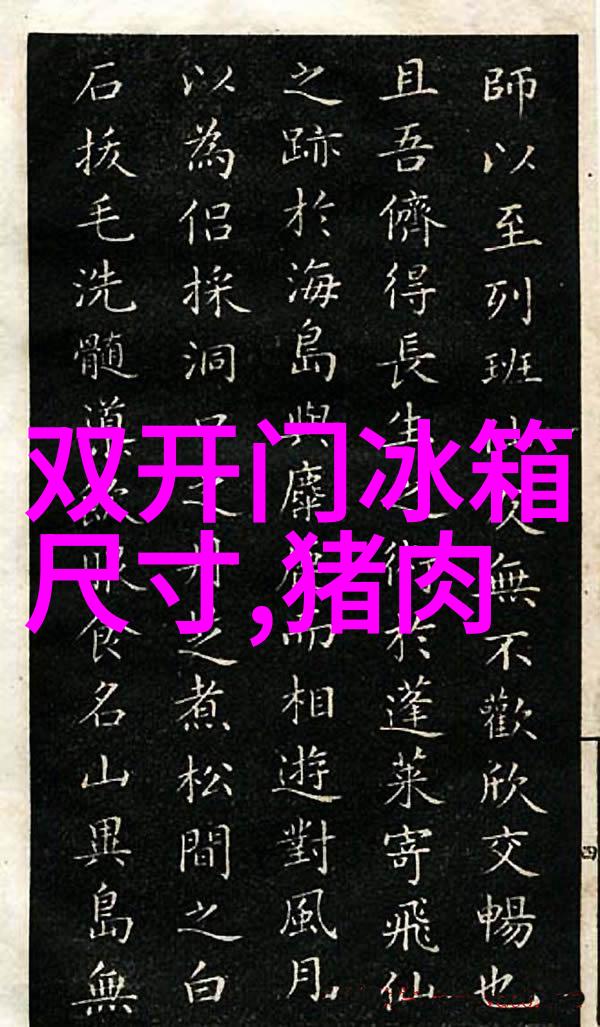 双开门冰箱
尺寸,猪肉
師以至列班無不歡欣交暢也
且吾儕得長生之術於蓬萊寄飛仙
之跡於海島與麋鹿而相遊對風月
以為侶採洞之煮松間之白
石拔毛洗髓導服食名山異島無
四